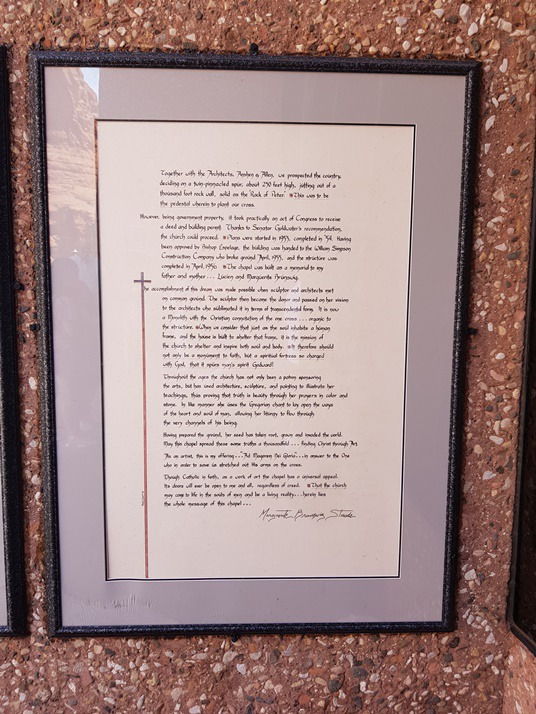 Together with the Architects, Anshen & Allen, we prospected the country,
deciding on a twin-pinnacled spur, about 250 feet high, jutting out of a
thousand foot rock wall, solid as the "Rock of Peter". This was to be
the pedestal wherein to plant our cross.
However, being government property, it took practically an act of Congress to receive
a deed and building permit. Thanks to Senator Goldwater's recommendation,
the church could proceed. Plans were started in 1953, completed in '54. Having
been approved by Bishop Espelage, the building was handed to the William Simpson
Construction Company who broke ground April, 1955, and the structure was
completed in April, 1956. The chapel was built as a memorial to my
father and mother... Lucien and Marguerite Brunswig.
The accomplishment of this dream was made possible when sculptor and architects met
on common ground. The sculptor then became the donor and passed on her vision
to the architects who sublimated it in terms of transcendental form. It is now
a Monolith with the Christian connotation of the one cross ... organic to
the structure. When we consider that just as the soul inhabits a human
frame, and the house is built to shelter that frame, it is the mission of
the church to shelter and inspire both soul and body. It therefore should
not only be a monument to faith, but a spiritual fortress so charged
with God, that it spurs man's spirit Godward!
Throughout the ages the church has not only been a patron sponsoring
the arts, but has used architecture, sculpture, and painting to illustrate her
teachings, thus proving that truth is beauty through her prayers in color and
stone. In like manner she uses the Gregorian chant to lay open the ways
of the heart and soul of man, allowing her liturgy to flow through
the very channels of his being.
Having prepared the ground, her seed has taken root, grown and invaded the world.
May this chapel spread these same truths a thousandfold ... finding Christ through Art.
As an artist, this is my offering ... "Ad Majorem Dei Gloria"... in answer to the One
who in order to save us stretched out His arms on the cross.
Though Catholic in faith, as a work of art the chapel has a universal appeal.
Its doors will ever be open to one and all, regardless of creed. That the church
may come to life in the souls of men and be a living reality ... herein lies
the whole message of this chapel ...
Marguerite Brunswig Staude